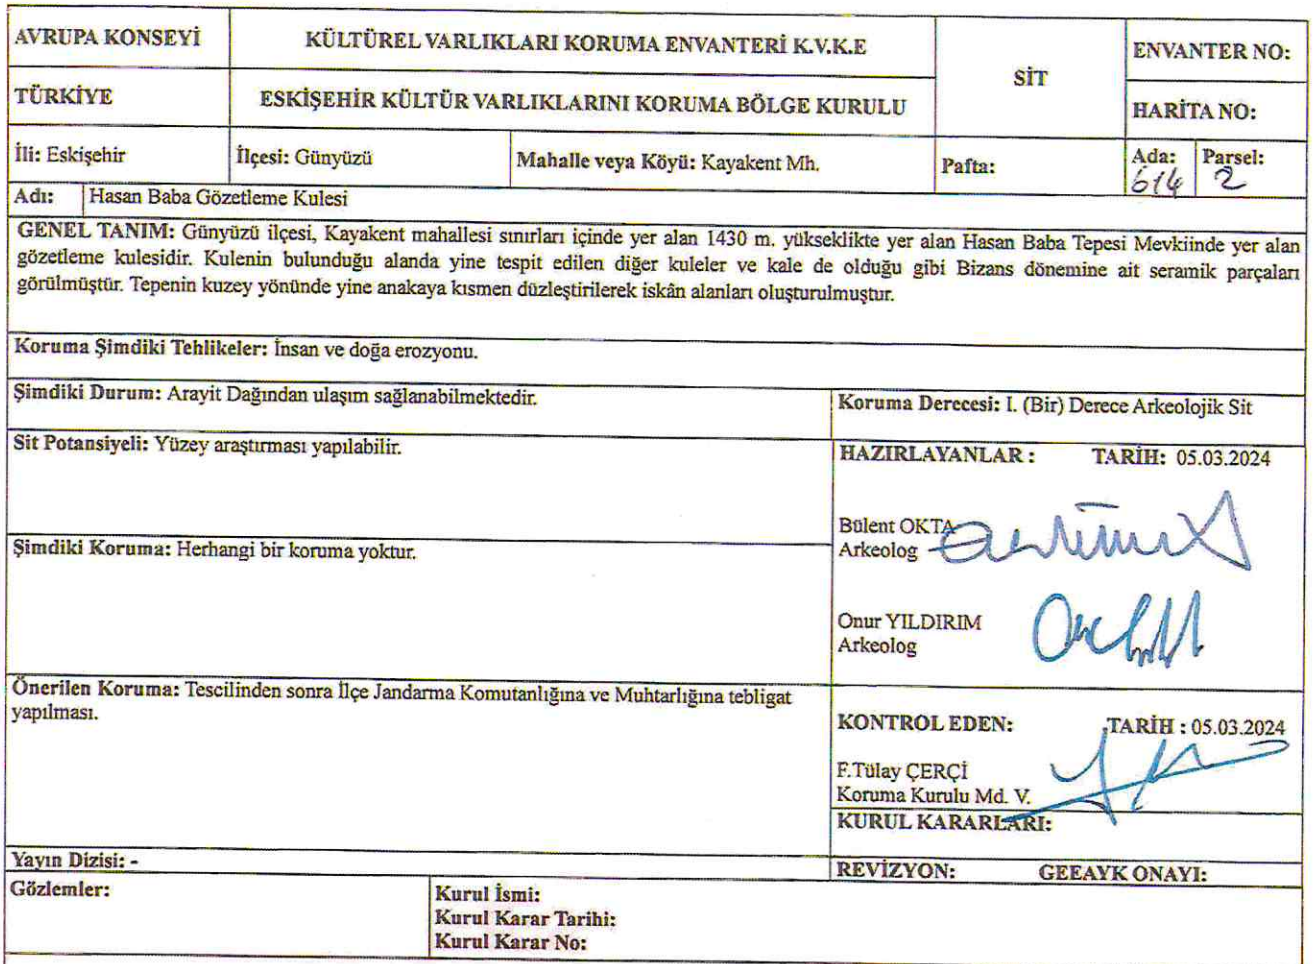 AVRUPA KONSEYİ
KÜLTÜREL VARLIKLARI KORUMA ENVANTERİ K.V.K.E
SİT
ENVANTER NO:
TÜRKİYE
ESKİŞEHİR KÜLTÜR VARLIKLARINI KORUMA BÖLGE KURULU
HARİTA NO:
İli: Eskişehir
İlçesi: Günyüzü
Mahalle veya Köyü: Kayakent Mh.
Pafta:
Ada: 614
Parsel: 2
Adı: Hasan Baba Gözetleme Kulesi
GENEL TANIM: Günyüzü ilçesi, Kayakent mahallesi sınırları içinde yer alan 1430 m. yükseklikte yer alan Hasan Baba Tepesi Mevkiinde yer alan
gözetleme kulesidir. Kulenin bulunduğu alanda yine tespit edilen diğer kuleler ve kale de olduğu gibi Bizans dönemine ait seramik parçaları
görülmüştür. Tepenin kuzey yönünde yine anakaya kısmen düzleştirilerek iskân alanları oluşturulmuştur.
Koruma Şimdiki Tehlikeler: İnsan ve doğa erozyonu.
Şimdiki Durum: Arayit Dağından ulaşım sağlanabilmektedir.
Koruma Derecesi: I. (Bir) Derece Arkeolojik Sit
Sit Potansiyeli: Yüzey araştırması yapılabilir.
HAZIRLAYANLAR : TARİH: 05.03.2024
Bülent OKTA
Arkeolog
Şimdiki Koruma: Herhangi bir koruma yoktur.
Onur YILDIRIM
Arkeolog
Önerilen Koruma: Tescilinden sonra İlçe Jandarma Komutanlığına ve Muhtarlığına tebligat
yapılması.
KONTROL EDEN: TARİH : 05.03.2024
F.Tülay ÇERÇİ
Koruma Kurulu Md. V.
KURUL KARARLARI:
Yayın Dizisi: -
REVİZYON: GEEAYK ONAYI:
Gözlemler:
Kurul İsmi:
Kurul Karar Tarihi:
Kurul Karar No: